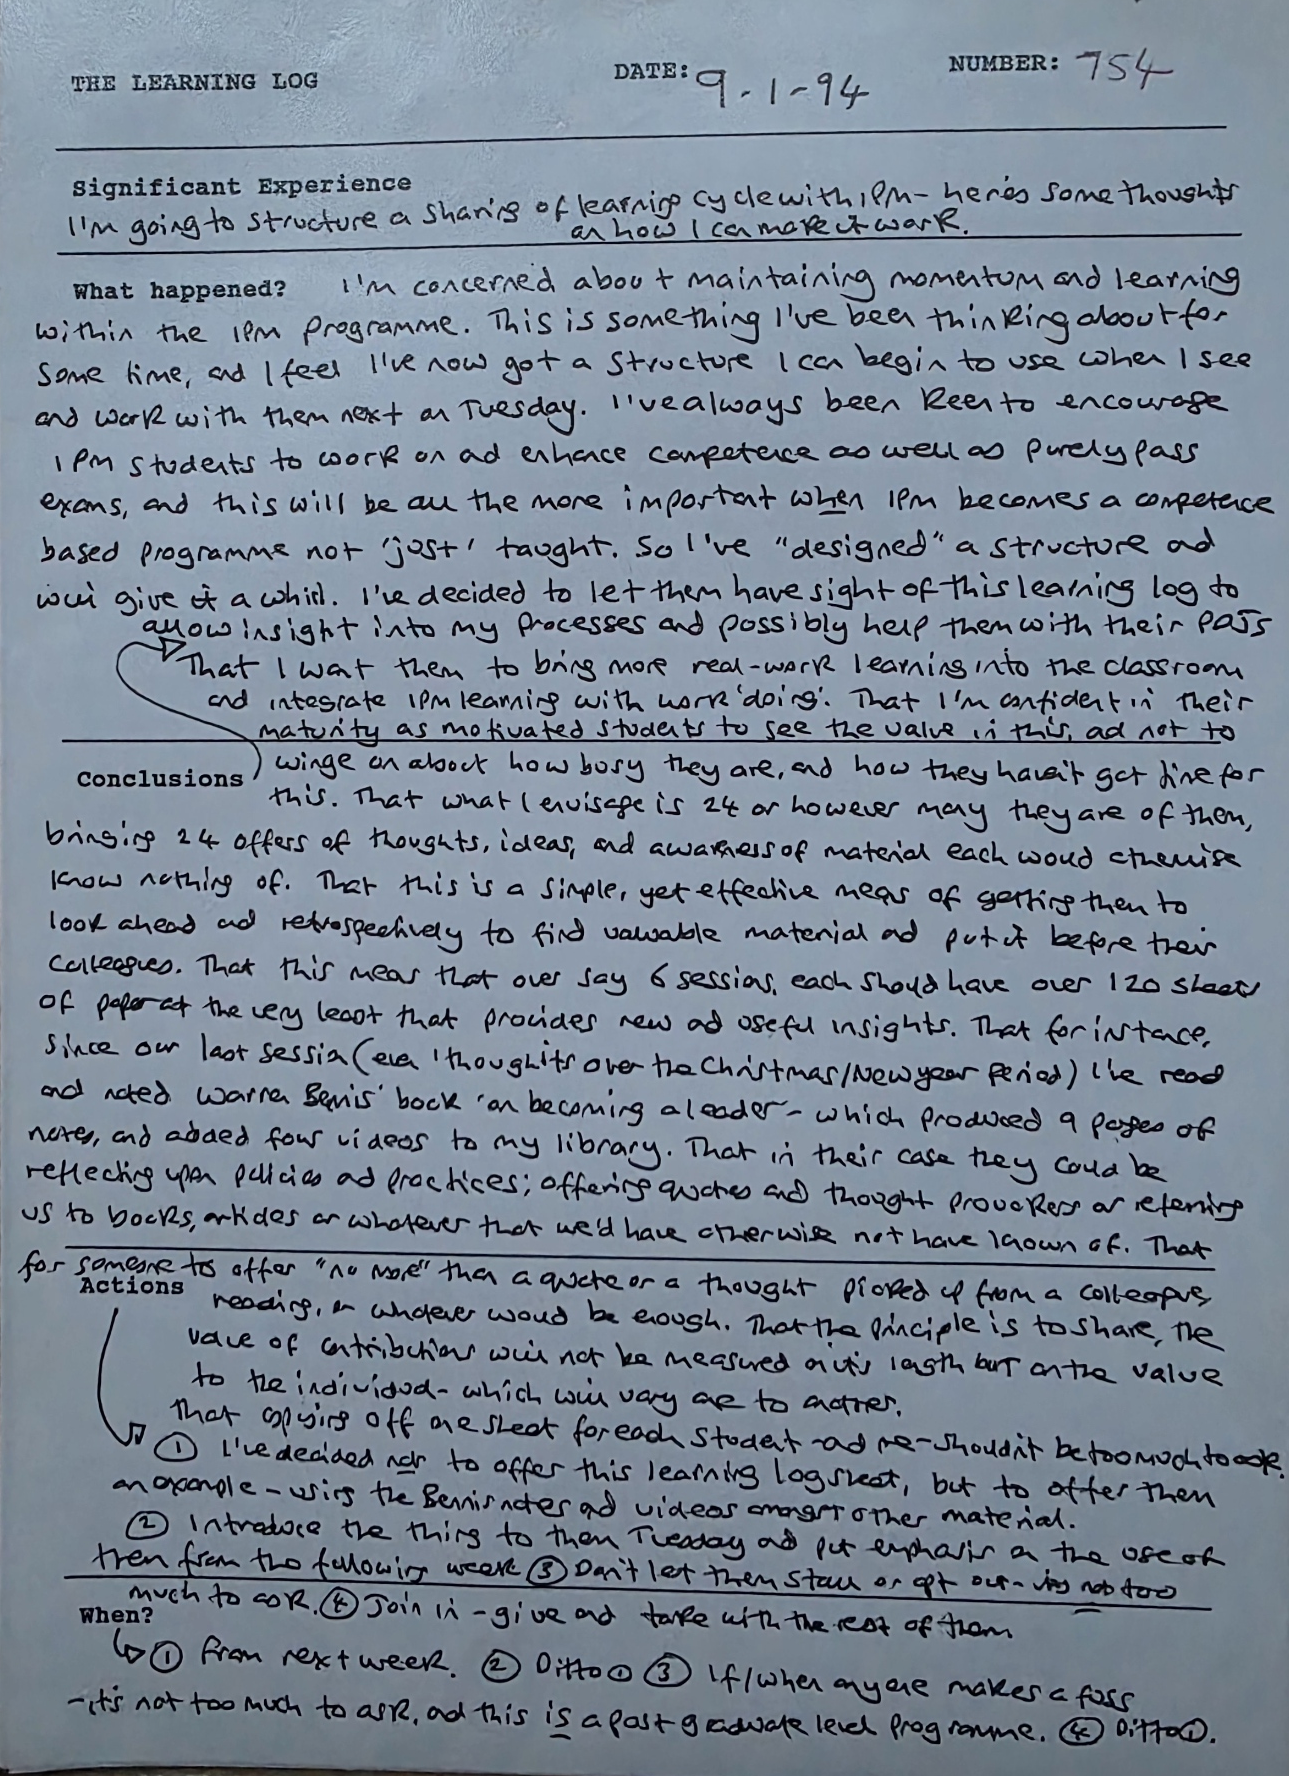 THE LEARNING LOG DATE: 9.1-94 NUMBER: 754
Significant Experience
I'm going to structure a sharing of learning cycle with IPM - here's some thoughts
on how I can make it work.
What happened? I'm concerned about maintaining momentum and learning
within the IPM programme. This is something I've been thinking about for
some time, and I feel I've now got a structure I can begin to use when I see
and work with them next on Tuesday. I've always been keen to encourage
IPM students to work on ad enhance competence as well as purely pass
exams, and this will be all the more important when IPM becomes a competence
based programme not 'just' taught. So I've "designed" a structure ad
will give it a whirl. I've decided to let them have sight of this learning log to
allow insight into my processes and possibly help them with their PASS
That I want them to bring more real-work learning into the classroom
and integrate IPM learning with work 'doing'. That I'm confident in their
maturity as motivated students to see the value in this, ad not to
Conclusions winge on about how busy they are, and how they haven't got time for
this. That what I envisage is 24 or however many they are of them,
bringing 24 offers of thoughts, ideas, and awareness of material each would otherwise
know nothing of. That this is a simple, yet effective means of getting them to
look ahead ad retrospectively to find valuable material ad put it before their
colleagues. That this means that over say 6 sessions, each should have over 120 sheets
of paper at the very least that provides new ad useful insights. That for instance,
since our last session (even 'though it's over the Christmas/New year period) I've read
and noted Warren Bennis' book 'on becoming a leader' - which produced 9 pages of
notes, and added four videos to my library. That in their case they could be
reflecting upon policies ad practices; offering quotes and thought provokers or referring
us to books, articles or whatever that we'd have otherwise not have known of. That
for someone to offer "no more" than a quote or a thought picked up from a colleague,
Actions reading, or whatever would be enough. That the principle is to share, the
value of contributions will not be measured on its length but on the value
to the individual - which will vary one to another.
That copying off one sheet for each student - ad me - shouldn't be too much to ask.
① I've decided not to offer this learning log sheet, but to offer them
an example - using the Bennis notes ad videos amongst other material.
② Introduce the thing to them Tuesday ad put emphasis on the use of
them from the following week ③ Don't let them stall or opt out - it's not too
much to ask. ④ Join in - give and take with the rest of them
When?
① From next week. ② Ditto ① ③ If/when anyone makes a fuss
- it's not too much to ask, ad this is a post graduate level programme. ④ Ditto ①.